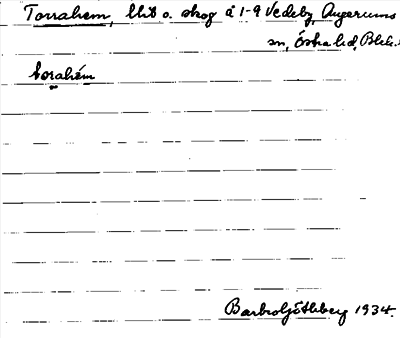 Torrahem, lht o. skog å 1-9 Vedeby, Augerums
sn, Östra hd, Blek.
torahém
Barbro Göthberg 1934.